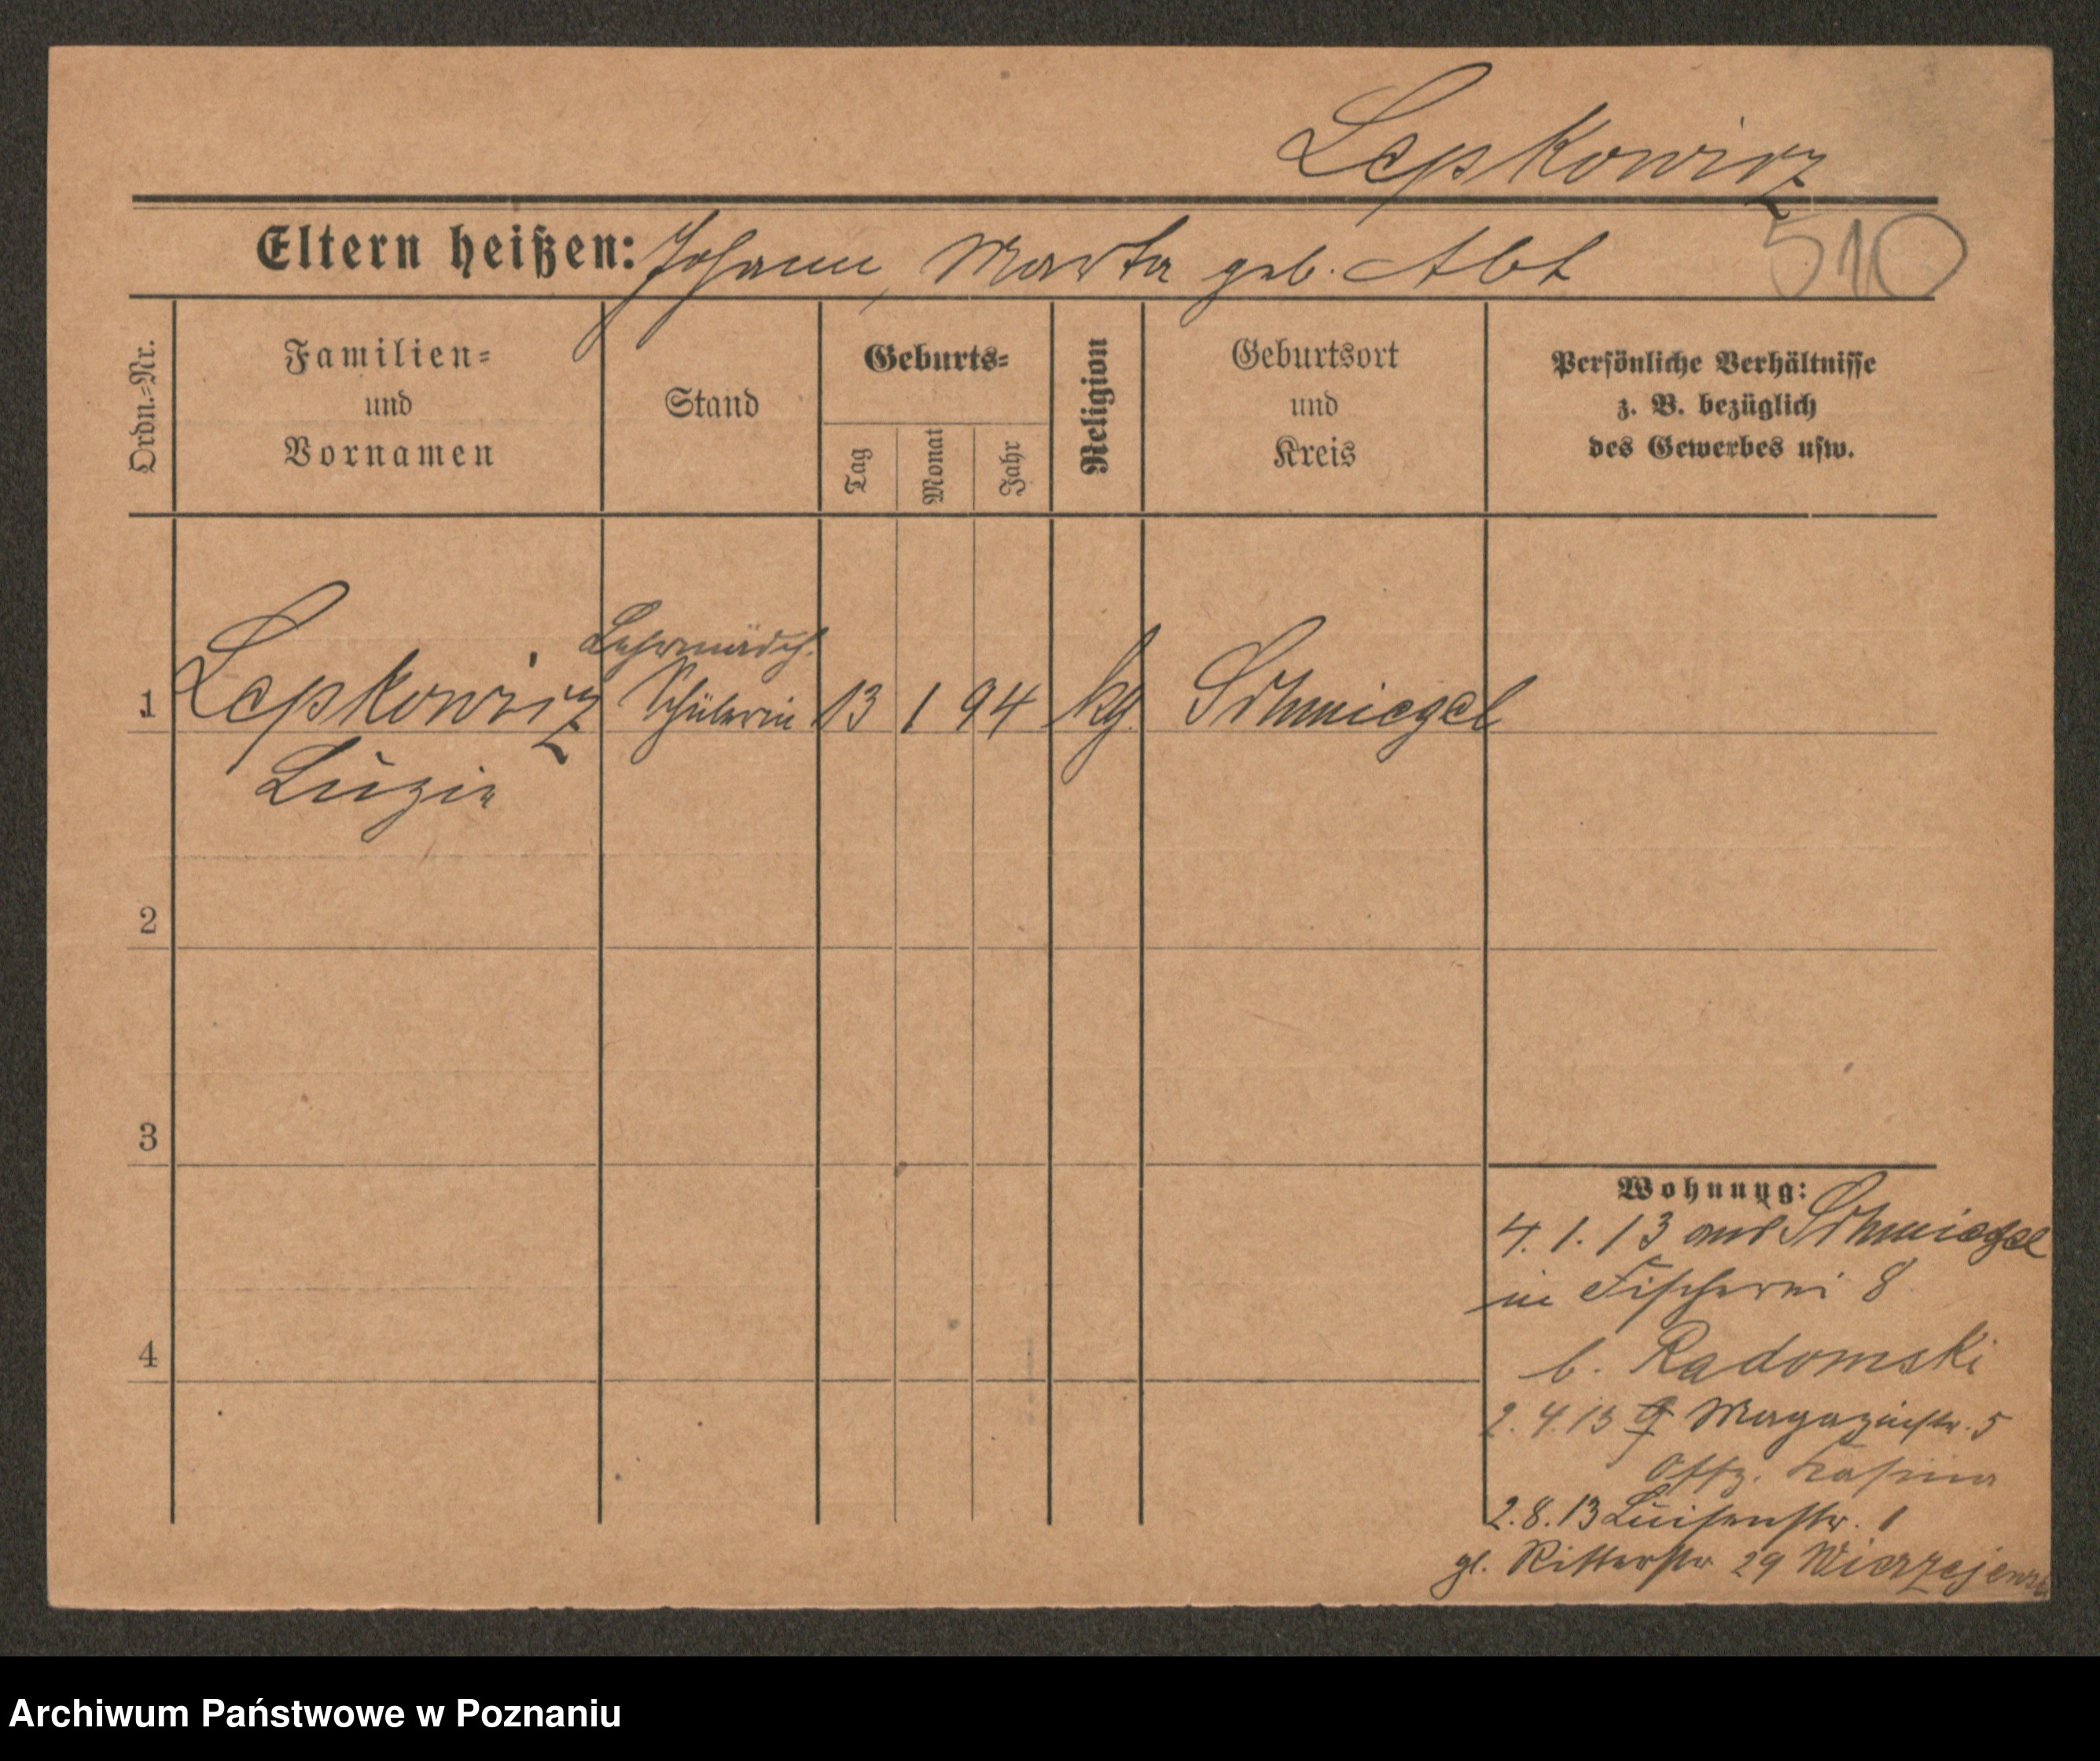 Lepkowicz
Eltern heißen: Johann, Marta geb. Abt
510
Ordn.-Nr.
Familien-
und
Vornamen
Stand
Geburts-
Tag
Monat
Jahr
Religion
Geburtsort
und
Kreis
Persönliche Verhältnisse
z. B. bezüglich
des Gewerbes usw.
Lehrmädch.
1 Lepkowicz Schülerin 13 1 94 kg. Schmiegel
Luzie
2
3
4
Wohnung:
4. 1. 13 aus Schmiegel
in Fischerei 8
b. Radomski
2. 4. 13 Magazinstr. 5
Offz. Kasino
2. 8. 13 Luisenstr. 1
gl. Ritterstr 29 Wierzejewski
Archiwum Państwowe w Poznaniu